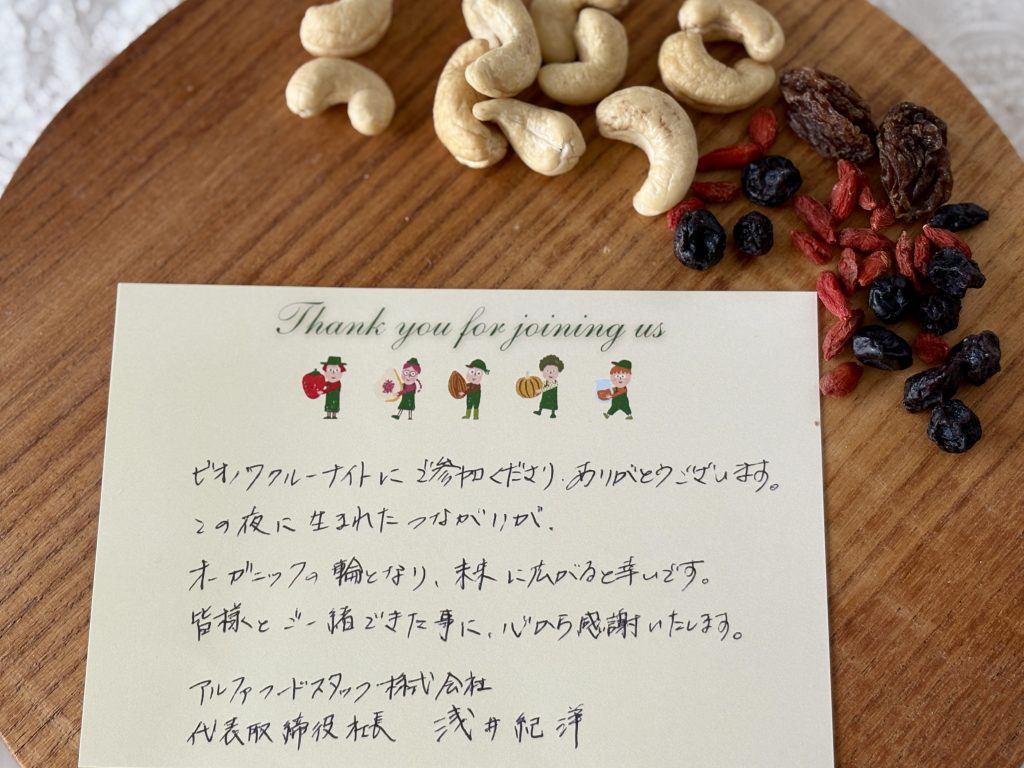 Thank you for joining us
ビオノワクルーナイトにご参加くださり、ありがとうございます。
この夜に生まれたつながりが、
オーガニックの輪となり、未来に広がると幸いです。
皆様とご一緒できた事に、心から感謝いたします。
アルファフードスタッフ株式会社
代表取締役社長 浅井紀洋